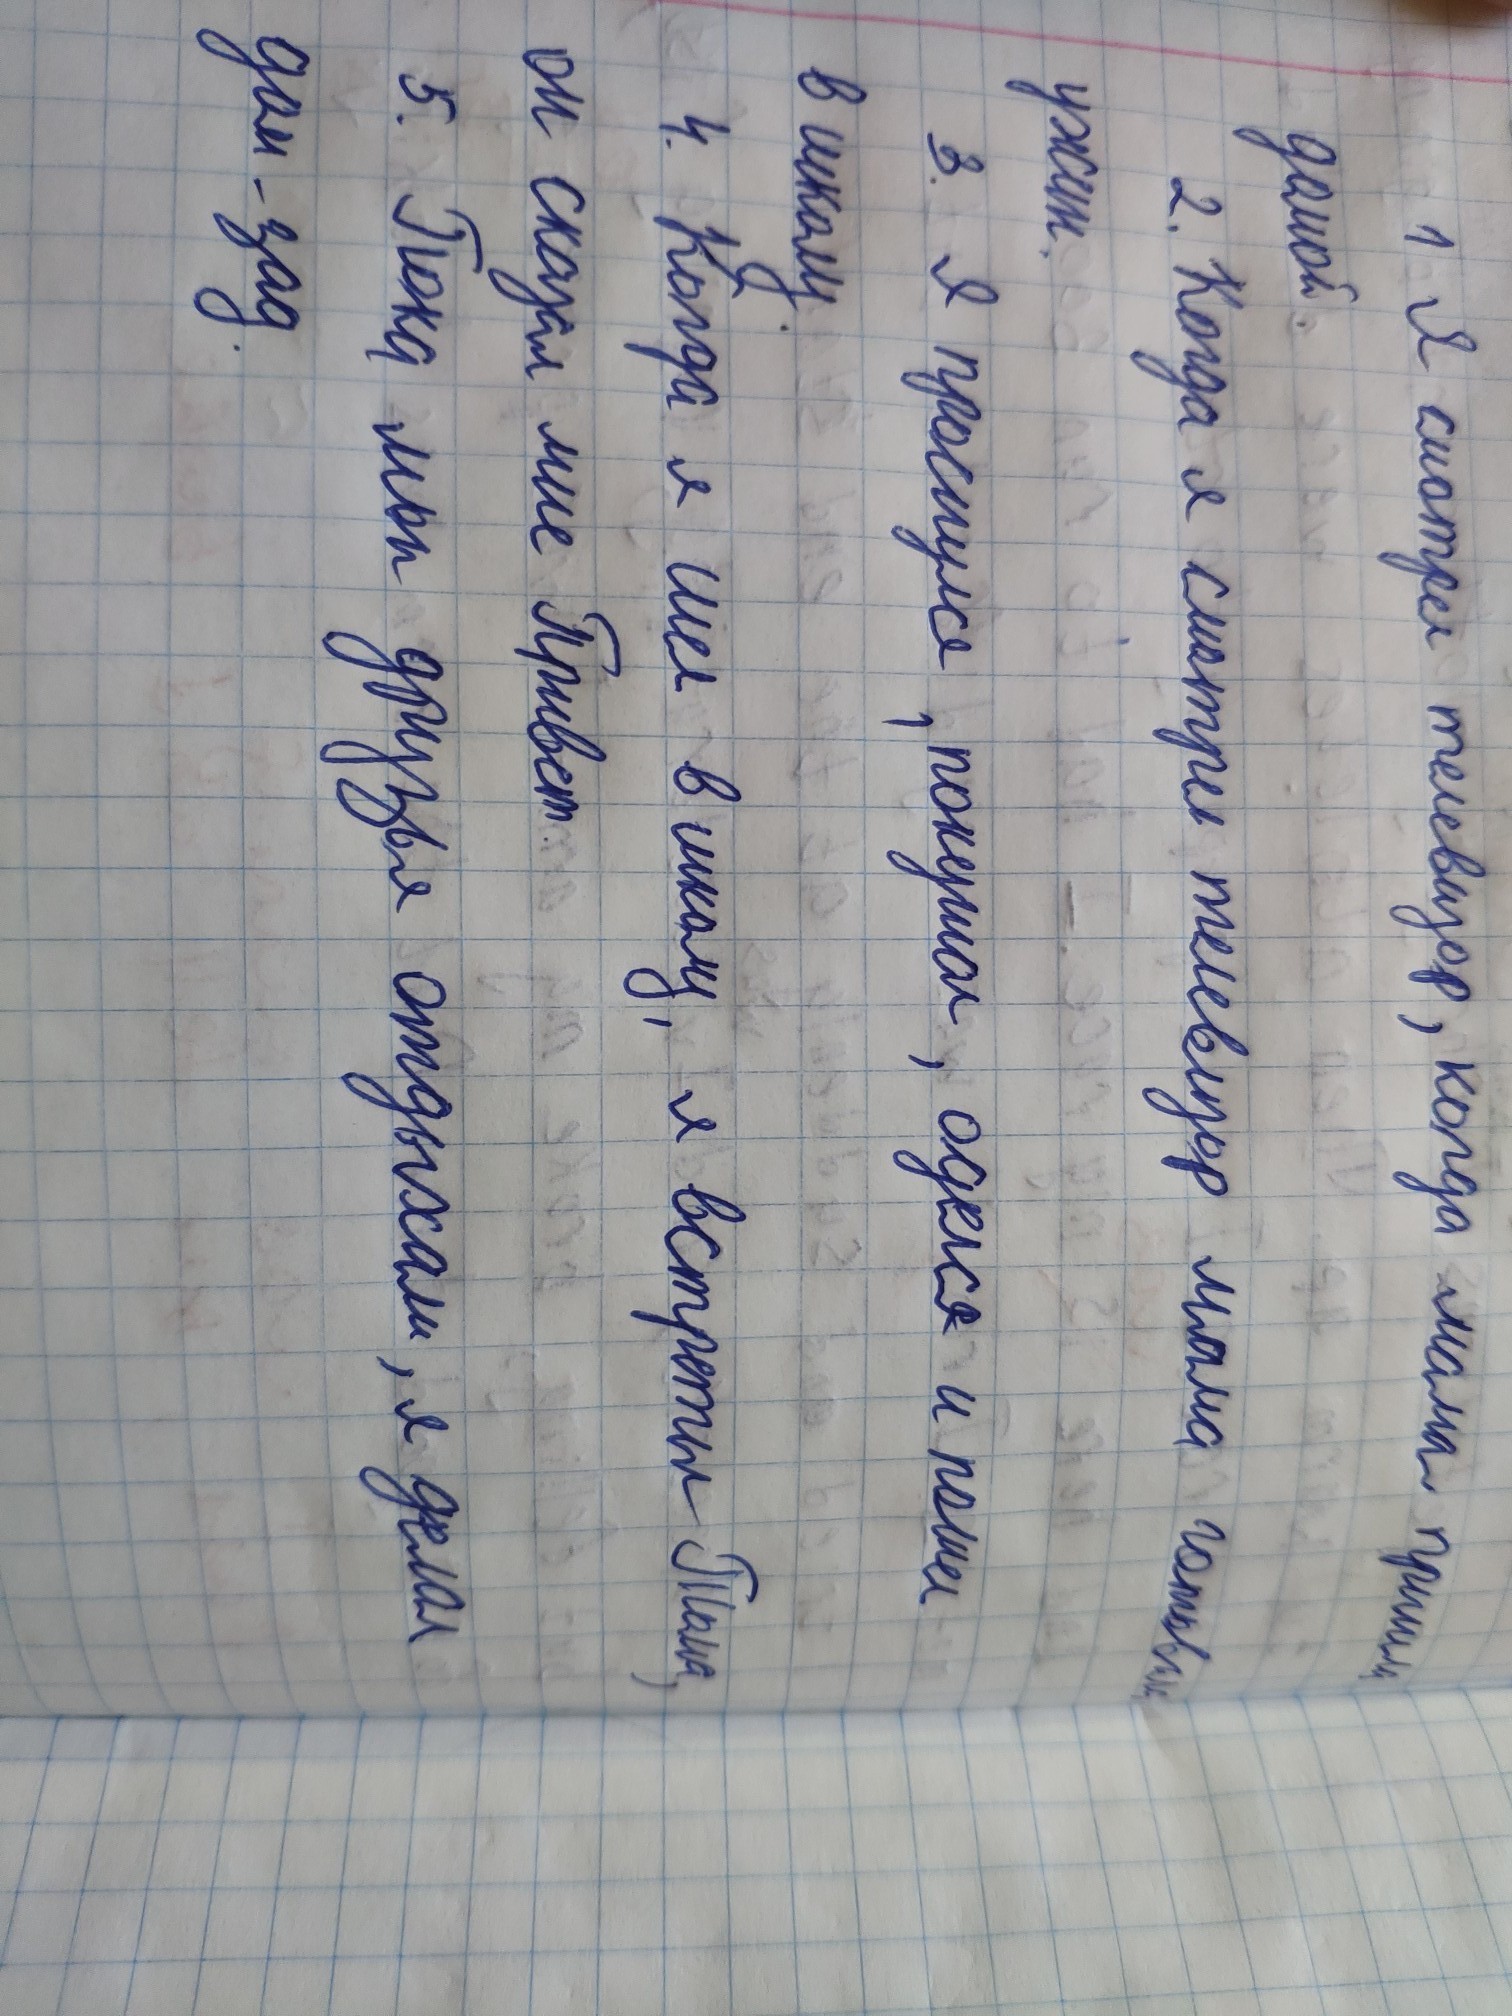 1 Я смотрел телевизор, когда мама пришла
домой.
2. Когда я смотрел телевизор мама готовила
ужин.
3. Я проснулся, покушал, оделся и пошел
в школу.
4. Когда я шел в школу, я встретил Тома,
он сказал мне Привет.
5. Пока мои друзья отдыхали, я делал
дом-зад.